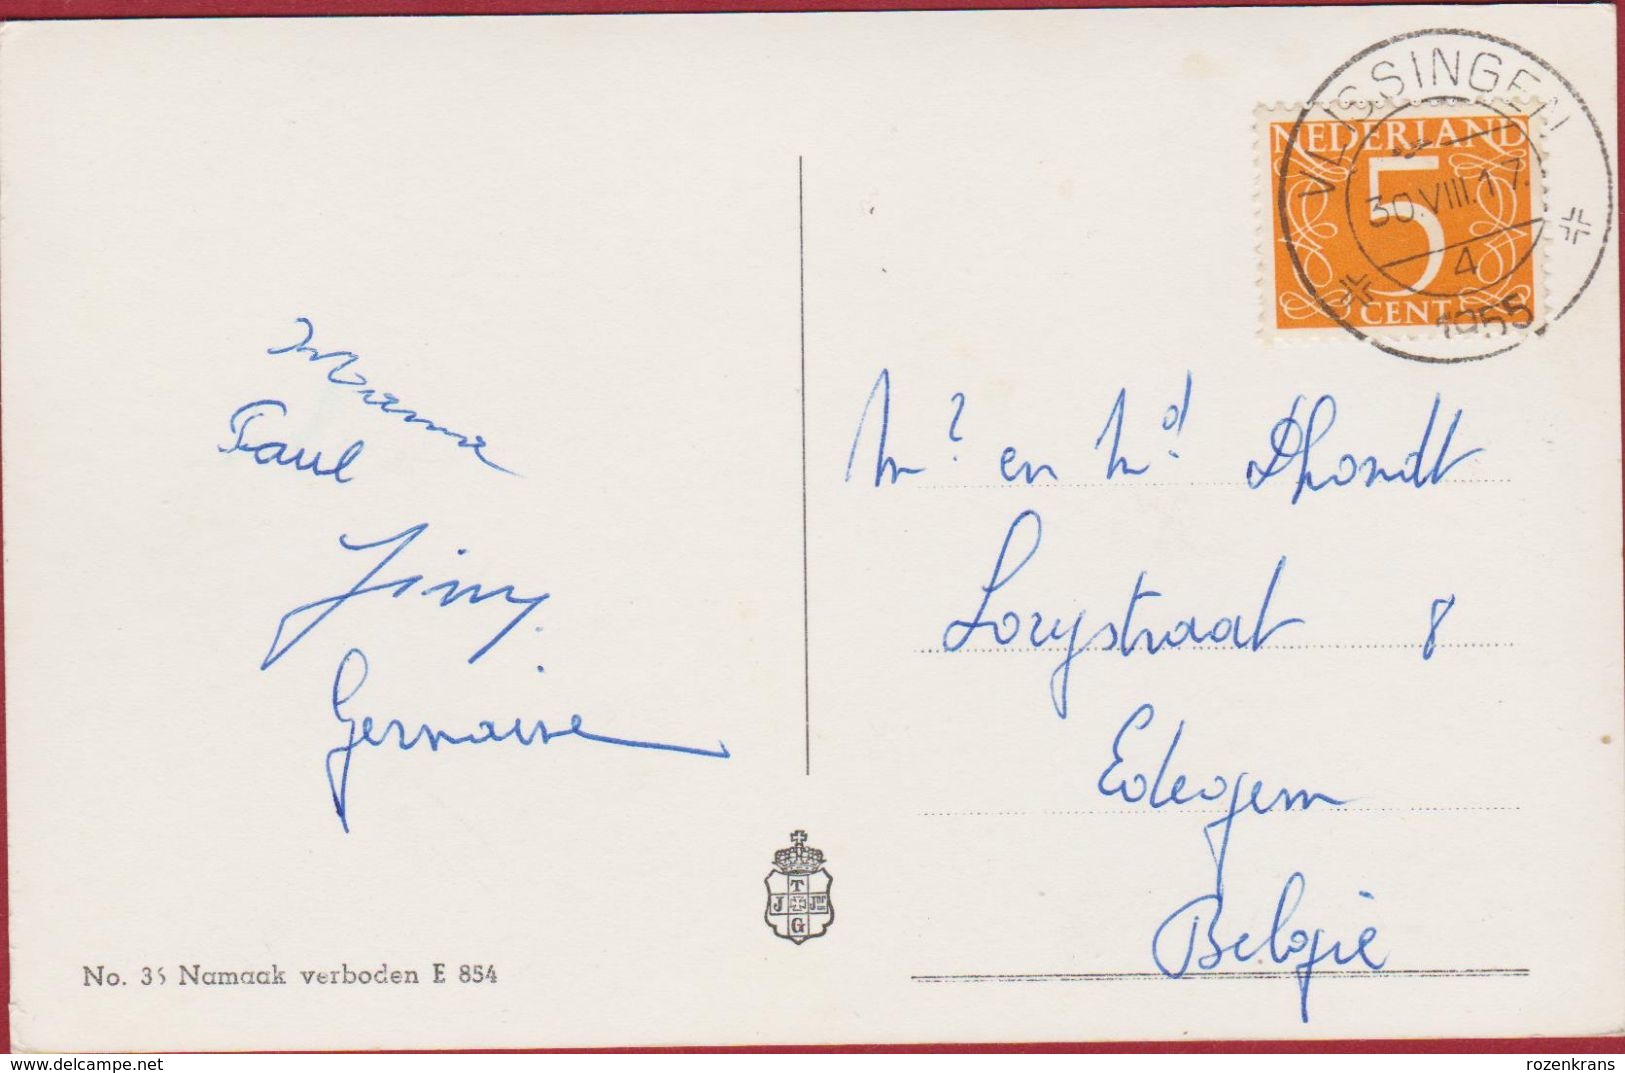 VLISSINGEN
30.VIII.17.
4
1955
NEDERLAND
5
CENT
Mama
Paul
Jimy.
Germaine
Mr. en Md. Dhondt
Lorystraat 8
Edegem
België
T
J Jnr
G
No. 35 Namaak verboden E 854
rozenkrans